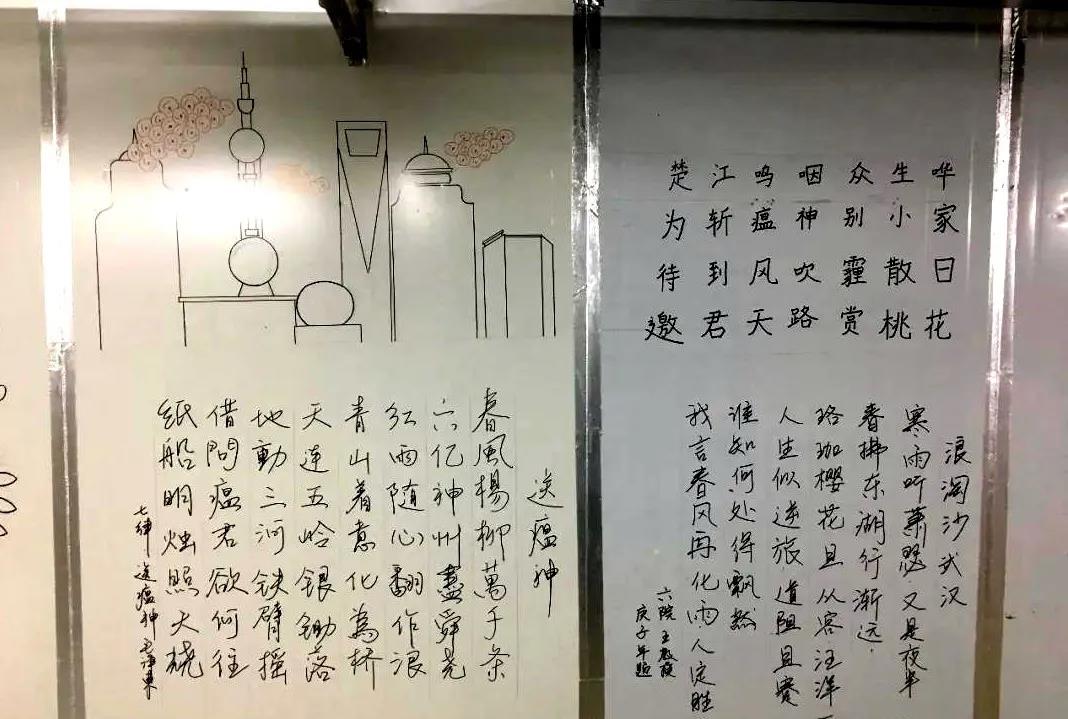 送瘟神
春風楊柳萬千条
六亿神州盡舜尧
红雨随心翻作浪
青山着意化為桥
天连五岭银锄落
地動三河铁臂摇
借問瘟君欲何往
纸船明烛照天烧
七律 送瘟神 毛泽東
楚江呜咽众生哗
为斩瘟神别小家
待到风吹霾散日
邀君天路赏桃花
浪淘沙武汉
寒雨听萧瑟 又是夜半
春拂东湖行渐远.
珞珈樱花且从容 汪洋一
人生似逆旅 道阻且
谁知何处得飘然
我言春风再化雨 人定胜
六院 王
庚子年题